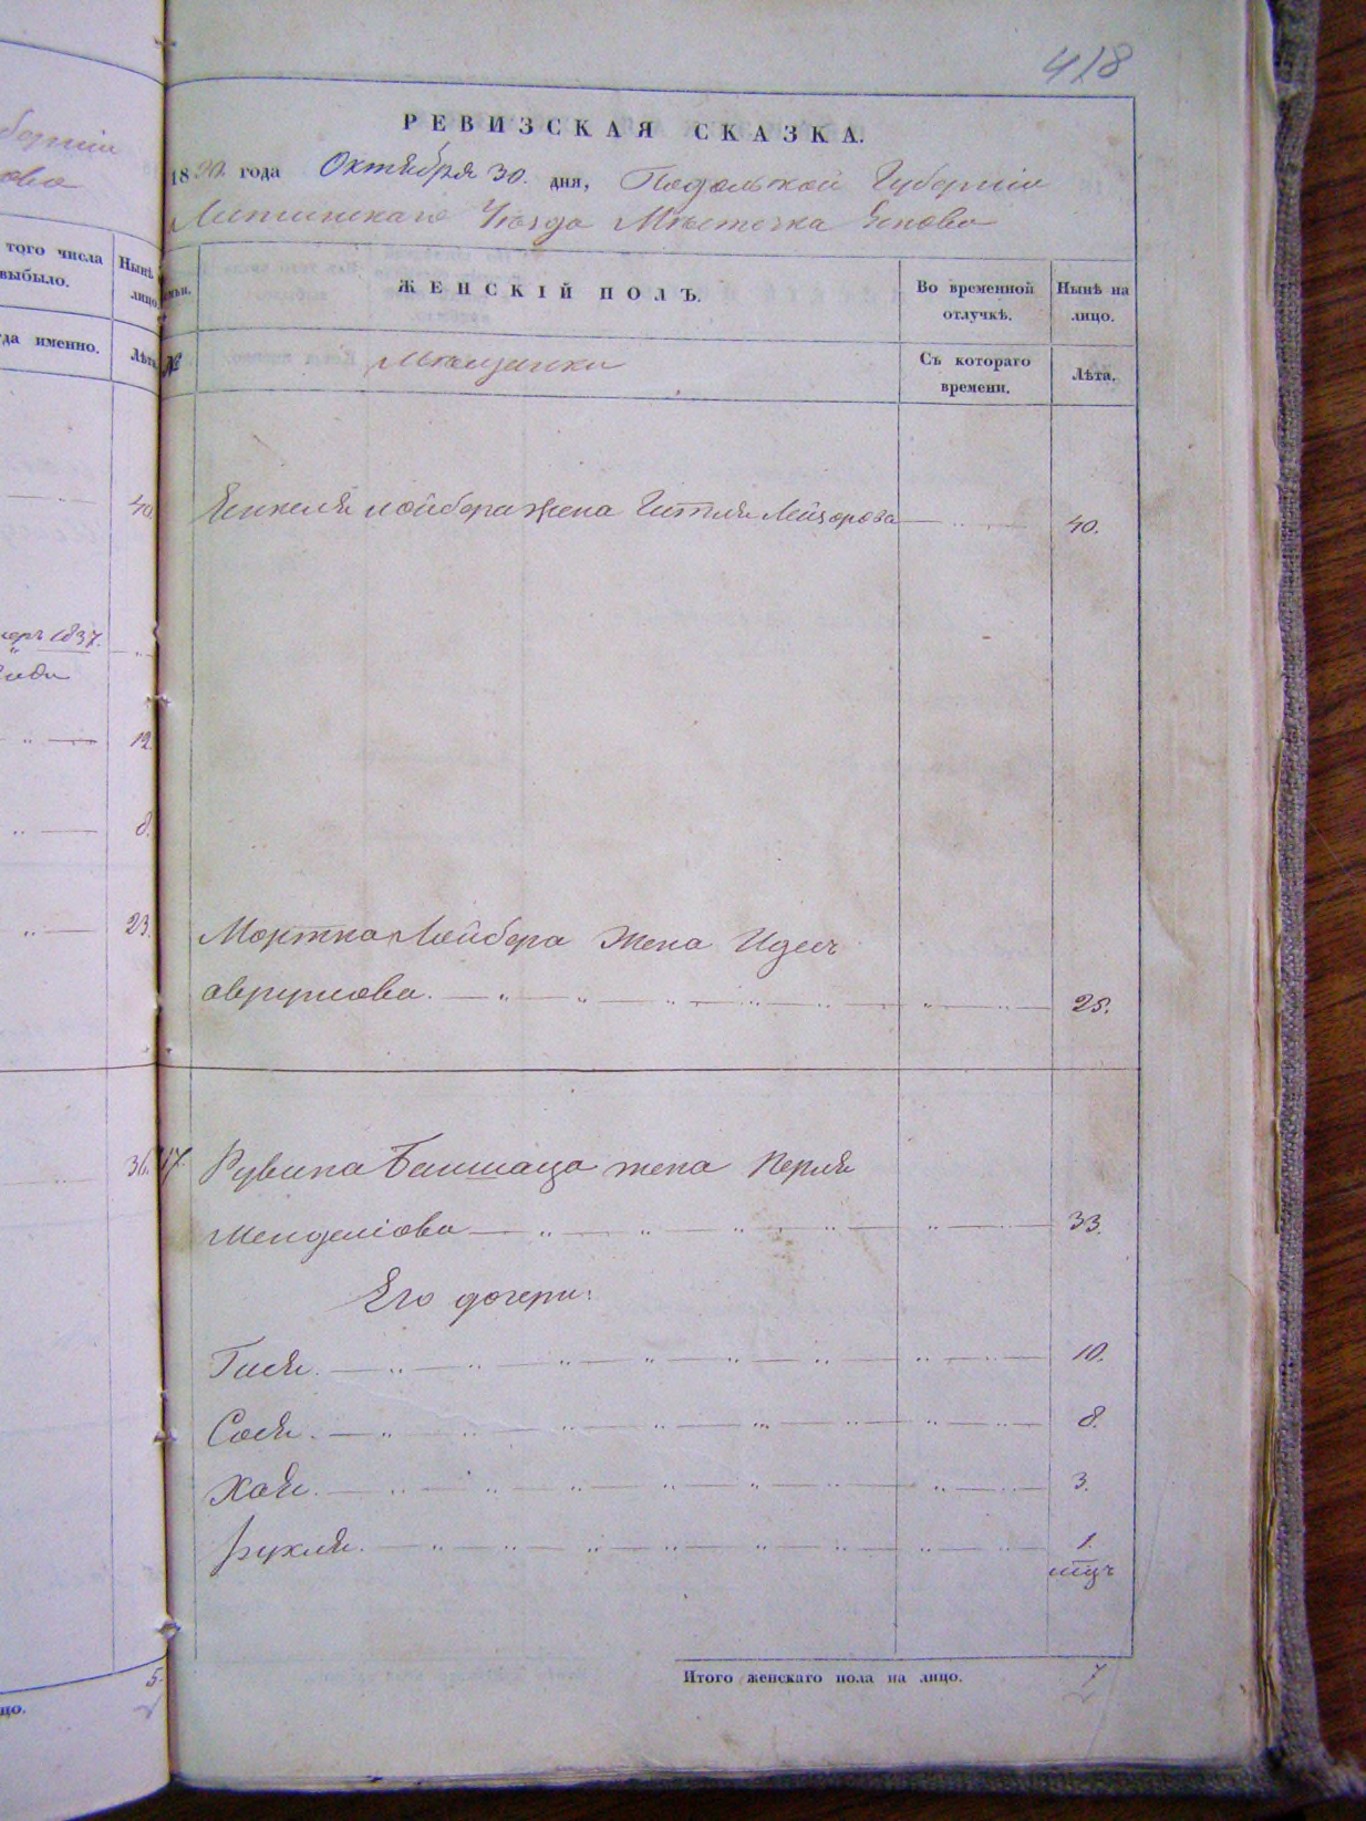 418
берніи
ово
РЕВИЗСКАЯ СКАЗКА.
1850. года Октября 30. дня, Подольской Губерніи
Литинскаго Уѣзда Мѣстечка Янова
того числа
выбыло.
Нынѣ
лицо
да именно.
Лѣта
40.
1837.
12.
8.
23.
36.
5.
цо.
емьи.
ЖЕНСКІЙ ПОЛЪ.
Во временной
отлучкѣ.
Нынѣ на
лицо.
№
Мѣщанки
Съ котораго
времени.
Лѣта.
Янкеля Лейбера жена Гитля 40.
Мортка Лейбера Жена Идесъ
аврумова. 25.
17. Рувина жена Перля
Менделіова 33.
Его дочери:
Гися. 10.
Сося. 8.
Хая. 3.
Рухля. 1.
мцъ
Итого женскаго пола на лицо. 7